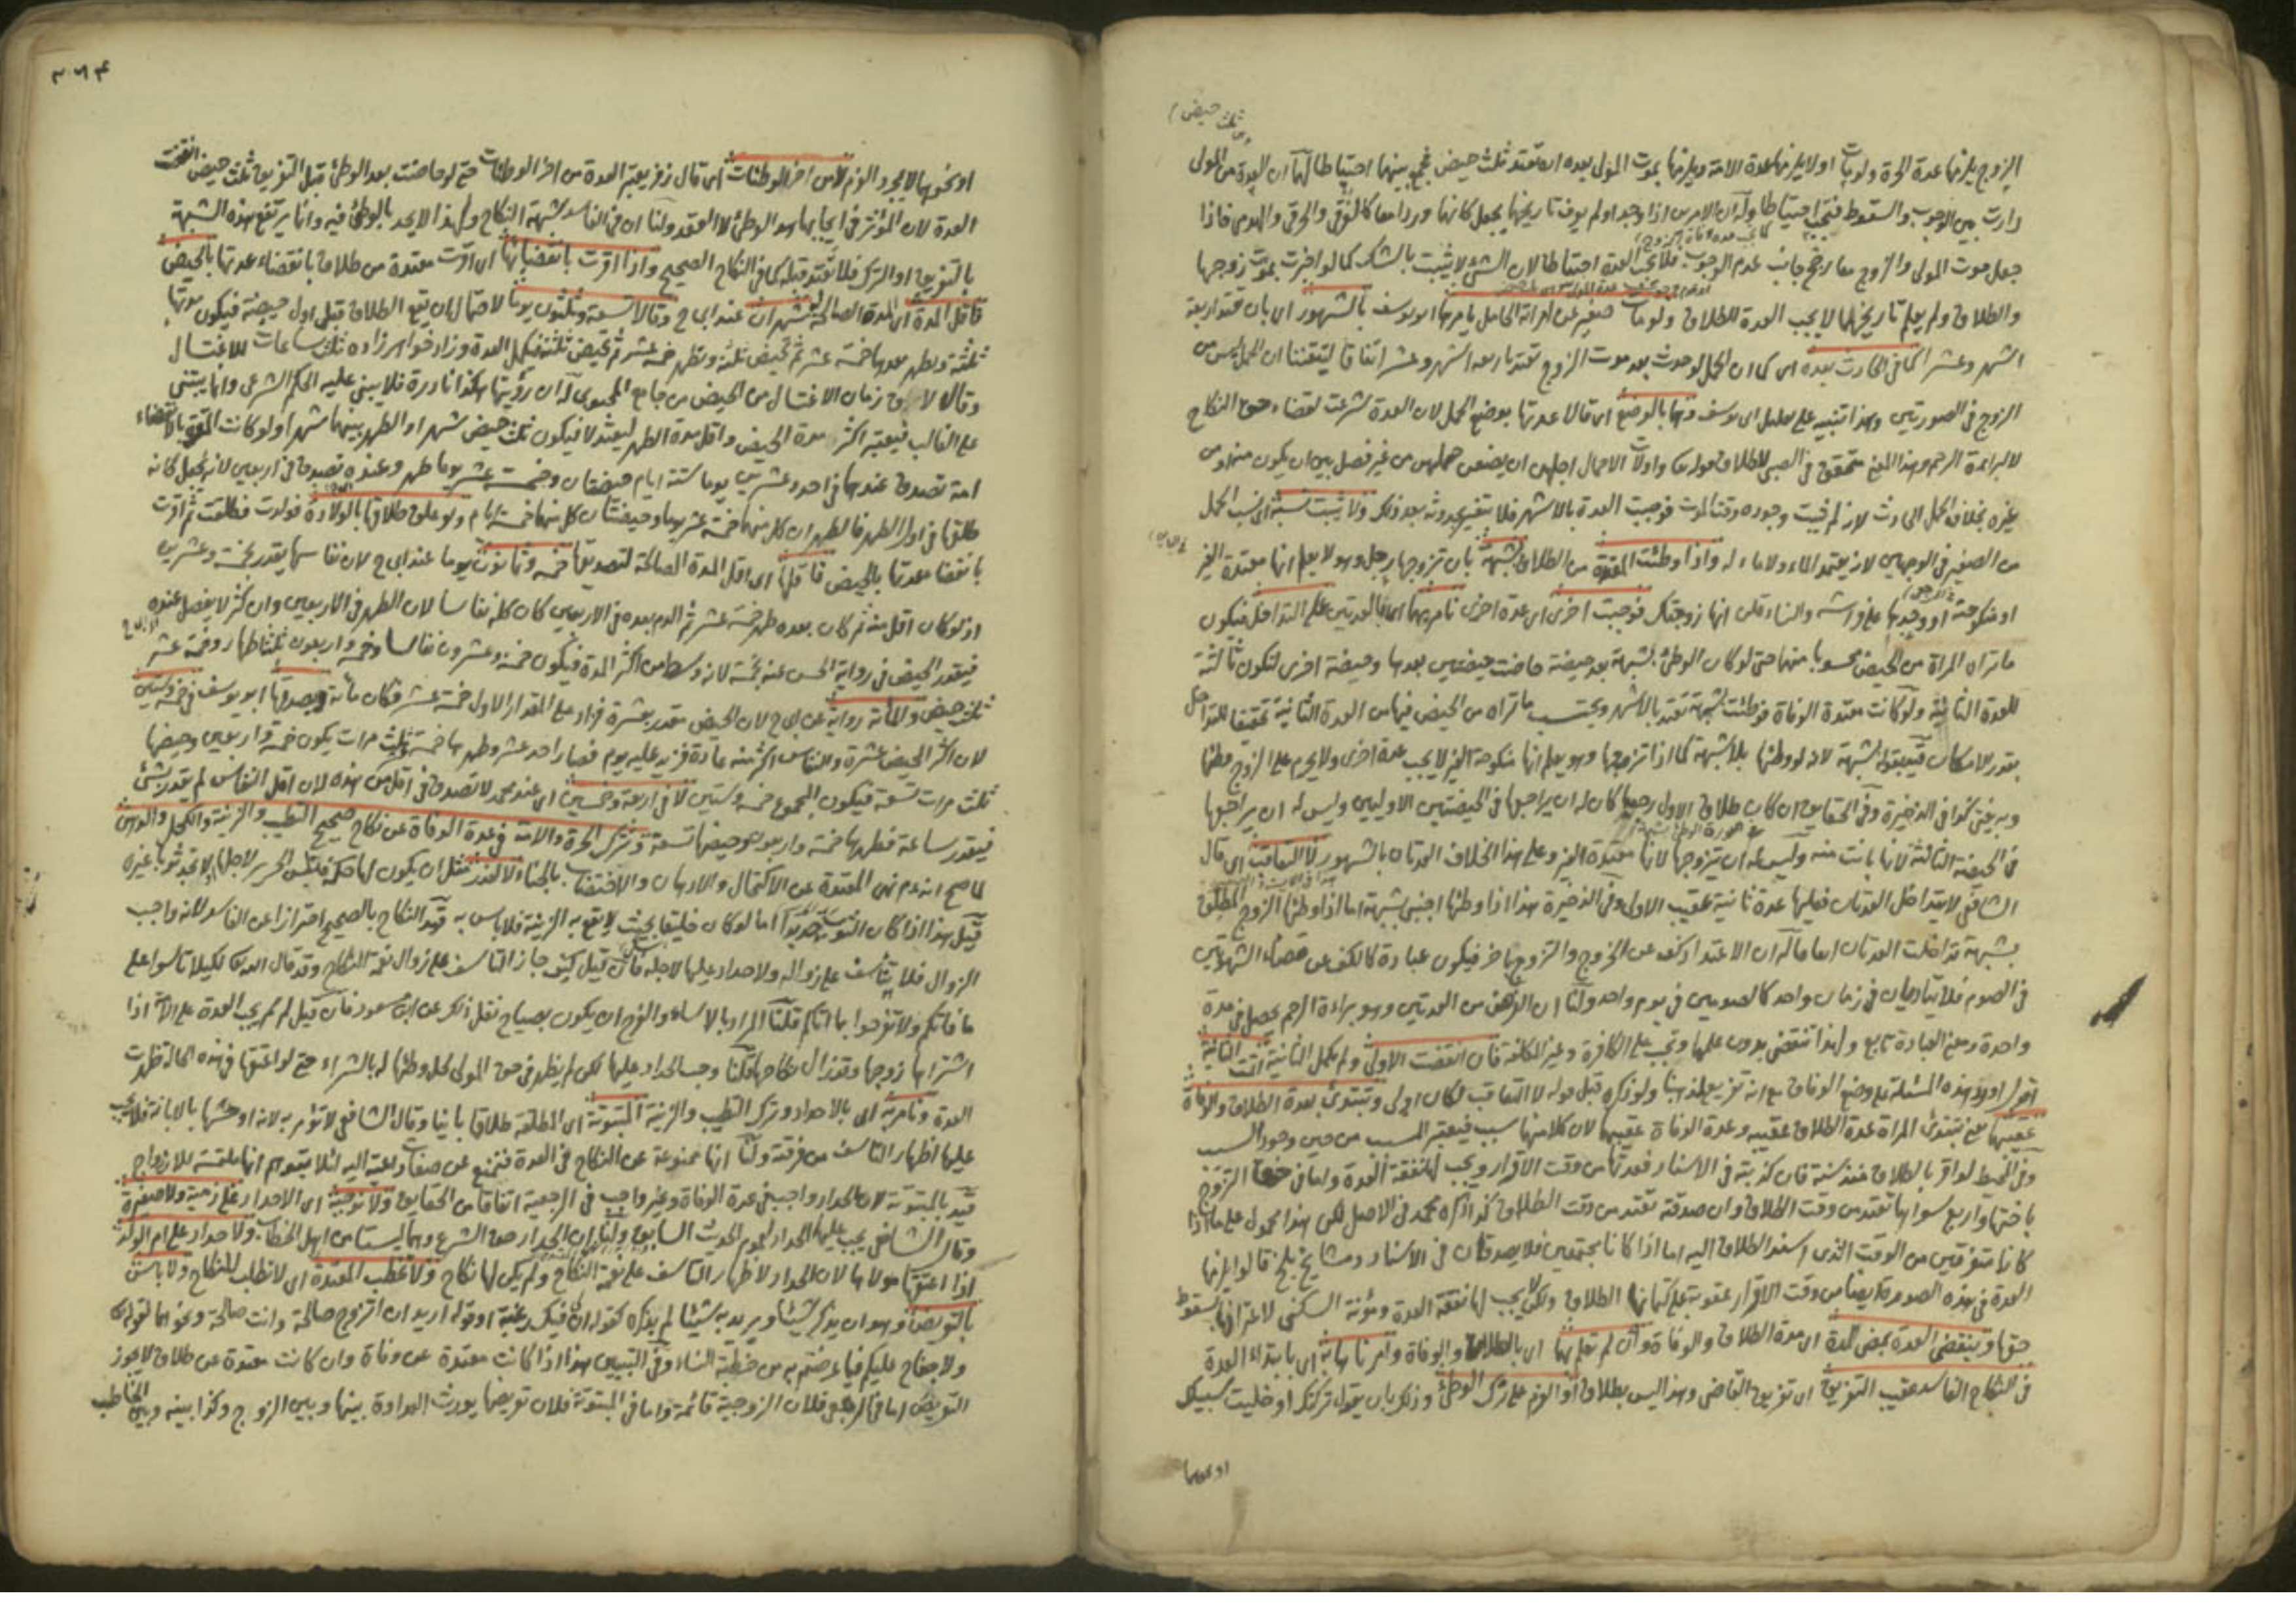 الزوج يلزمها عدة الحرة ولو مات اولا يلزمها عدة الامة ويلزمها بموت المولى بعده ان تعتد ثلث حيض فجمع بينهما احتياطا لهما ان العدة من المولى
دارت بين الوجوب والسقوط فتجب احتياطا وله ان الامرين اذا وجدا ولم يعرف تاريخهما يجعل كانهما وردا معا كالغرقى والحرقى والهدمى فاذا
جعل موت المولى والزوج معا رجح جانب عدم الوجوب فلا تجب العدة احتياطا لان الشئ لا يثبت بالشك كما لو اخبرت بموت زوجها
والطلاق ولم يعلم تاريخهما لا يجب العدة للطلاق ولو مات صغير عن امراته الحامل يامرها ابو يوسف بالشهور اى بان تعتد اربعة
اشهر وعشرا كما فى الحادث بعده اى كما ان الحمل لو حدث بعد موت الزوج تعتد باربعة اشهر وعشر اتفاقا لتيقننا ان الحمل ليس من
الزوج فى الصورتين وهذا تنبيه على تعليل ابى يوسف وهما بالوضع اى قالا عدتها بوضع الحمل لان العدة شرعت لقضاء حق النكاح
لا لبراءة الرحم وهذا المعنى متحقق فى الصبى لاطلاق قوله تعالى واولات الاحمال اجلهن ان يضعن حملهن من غير فصل بين ان يكون منه او من
غيره بخلاف الحمل الحادث لانه لم يثبت وجوده وقت الموت فوجبت العدة بالاشهر فلا تتغير بحدوثه بعد ذلك ولا يثبت نسبه اى نسب الحمل
من الصغير فى الوجهين لانه يعتمد الماء ولا ماء له واذا وطئت المعتدة من الطلاق بشبهة بان تزوجها رجل وهو لا يعلم انها معتدة الغير
او منكوحة او وجدها على فراشه والنساء قلن انها زوجتك فوجبت اخرى اى عدة اخرى نامرهما اى بالعدتين على التداخل فيكون
ما تراه المراة من الحيض محسوبا منهما حتى لو كان الوطئ بشبهة بعد حيضة حاضت حيضتين بعدها وحيضة اخرى لتكون ثالثة
للعدة الثانية ولو كانت معتدة الوفاة فوطئت بشبهة تعتد بالاشهر ويحتسب ما تراه من الحيض فيها من العدة الثانية تحقيقا للتداخل
بقدر الامكان قيد بقوله بشبهة لانه لو وطئها بلا شبهة كما اذا تزوجها وهو يعلم انها منكوحة الغير لا يجب عدة اخرى ولا يحرم على الزوج وطئها
وبه يفتى كذا فى الذخيرة وفى الحقايق ان كان طلاق الاول رجعيا كان له ان يراجعها فى الحيضتين الاوليين وليس له ان يراجعها
فى الحيضة الثالثة لانها بانت منه وليس له ان يتزوجها لانها معتدة الغير وعلى هذا الخلاف العدتان بالشهور لا التعاقب اى قال
الشافعى لا يتداخل العدتان فعليها عدة ثانية عقيب الاولى وفى الذخيرة هذا اذا وطئها اجنبى بشبهة اما اذا وطئها الزوج المطلق
بشبهة تداخلت العدتان اجماعا له ان الاعتداد كف عن الخروج والتزوج باخر فيكون عبادة كالكف عن قضاء الشهوتين
فى الصوم فلا يتاديان فى زمان واحد كالصومين فى يوم واحد ولنا ان الغرض من العدتين وهو براءة الرحم يحصل فى مدة
واحدة ومعنى العبادة تابع ولهذا تنقضى بدون علمها وتجب على الكافرة وغير المكلفة فان انقضت الاولى ولم تكمل الثانية اتمت الثانية
اقول اورد هذه المسئلة مع وضع الوفاق مع انه تفريع لمذهبنا ولو ذكره قبل قوله لا التعاقب لكان اولى وتبتدئ بعدة الطلاق والوفاة
عقيبهما يعنى تبتدئ المراة عدة الطلاق عقيبه وعدة الوفاة عقيبها لان كلا منهما سبب فيعتبر المسبب من حين وجود السبب
وفى المحيط لو اقر بالطلاق منذ سنة فان كذبته فى الاسناد فعدتها من وقت الاقرار ويجب لها نفقة العدة واما فى حق التزوج
باختها واربع سواها تعتد من وقت الطلاق وان صدقته تعتد من وقت الطلاق كذا ذكره محمد فى الاصل لكن هذا محمول على ما اذا
كانا متفرقين من الوقت الذى اسند الطلاق اليه اما اذا كانا مجتمعين فلا يصدقان فى الاسناد ومشايخ بلخ قالوا يلزمها
العدة فى هذه الصورة ايضا من وقت الاقرار عقوبة على كتمانها الطلاق ولكن لا يجب لها نفقة العدة ومؤنة السكنى لاعترافها بسقوط
حقها وينقضى العدة بمضى المدة اى مدة الطلاق والوفاة وان لم تعلم بهما اى بالطلاق والوفاة وامرناها به اى بابتداء العدة
فى النكاح الفاسد عقيب التفريق اى تفريق القاضى وهذا ليس بطلاق او العزم على ترك الوطئ وذلك بان يقول تركتك او خليت سبيلك
او نحوهما
٣٦٤
او نحوهما لا بمجرد العزم لا من اخر الوطئات اى قال زفر يعتبر العدة من اخر الوطئات حتى لو حاضت بعد الوطئ قبل التفريق ثلث حيض انقضت
العدة لان المؤثر فى ايجابها هو الوطئ لا العقد ولنا ان فى الفاسد شبهة النكاح ولهذا لا يحد بالوطئ فيه وانما يرتفع هذه الشبهة
بالتفريق او الترك فلا تعتد قبله كما فى النكاح الصحيح واذا اقرت بانقضائها اى اقرت معتدة من طلاق بانقضاء عدتها بالحيض
فاقل المدة اى المدة الصالحة له شهران عند ابى ح وقالا تسعة وثلثون يوما لاحتمال ان يقع الطلاق قبل اول حيضة فيكون مدتها
ثلثة وتطهر بعدها خمسة عشر ثم تحيض ثلثة وتطهر خمسة عشر ثم تحيض ثلثة فيكمل العدة وزاد خواهر زاده ثلث ساعات للاغتسال
وقالا لان زمان الاغتسال من الحيض من جامع المحبوبى له ان رؤيتها هكذا نادرة فلا يبنى عليه الحكم الشرعى وانما يبتنى
على الغالب فيعتبر اكثر مدة الحيض واقل مدة الطهر ليعتدلا فيكون ثلث حيض شهرا والطهر بينهما شهرا ولو كانت المقرة بالانقضاء
امة تصدق عندهما فى احد وعشرين يوما ستة ايام حيضتان وخمسة عشر يوما طهر وعنده تصدق فى اربعين لانه يجعل كانه
طلقها فى اول الطهر فالطهران كل منهما خمسة عشر يوما وحيضتان كل منهما خمسة ايام ولو علق طلاقها بالولادة فولدت فطلقت ثم اقرت
بانقضاء عدتها بالحيض فاقلها اى اقل المدة الصالحة لتصديقها خمسة وثمانون يوما عند ابى ح لان نفاسها يقدر بخمسة وعشرين
اذ لو كان اقل منه ثم كان بعده طهر خمسة عشر ثم الدم بعده فى الاربعين كان كله نفاسا لان الطهر فى الاربعين وان كثر لا يفصل عنده
فيقدر الحيض فى رواية الحسن عنه بخمسة لانه وسط من اكثر المدة فيكون خمسة وعشرون نفاسا وخمسة واربعون ثلثة اطهار وخمسة عشر
ثلث حيض والمائة رواية عن ابى ح لان الحيض مقدر بعشرة فزاد على المقدار الاول خمسة عشر فكان مائة ويصدقها ابو يوسف فى خمسة وستين
لان اكثر الحيض عشرة والنفاس اكثر منه عادة فزيد عليه يوم فصار احد عشر وطهرها خمسة عشر ثلث مرات يكون خمسة واربعين وحيضها
ثلث مرات تسعة فيكون المجموع خمسة وستين لا فى اربعة وخمسين اى عند محمد لا تصدق فى اقل من هذه لان اقل النفاس لم يقدر بشئ
فيقدر ساعة فطهرها خمسة واربعون وحيضها تسعة وتترك الحرة والامة فى عدة الوفاة عن نكاح صحيح الطيب والزينة والكحل والدهن
لما صح انه عم نهى المعتدة عن الاكتحال والادهان والاختضاب بالحناء الا لعذر مثل ان يكون لها حكة فتلبس الحرير لاجلها او لا تجد ثوبا غيره
قيل هذا اذا كان الثوب جديدا اما لو كان خليقا بحيث لا يقع به الزينة فلا باس به قيد النكاح بالصحيح احترازا عن الفاسد لانه واجب
الزوال فلا يتاسف على زواله ولا حداد عليها لاجله فان قيل كيف جاز التاسف على زوال نعمة النكاح وقد قال الله تعالى لكيلا تاسوا على
ما فاتكم ولا تفرحوا بما اتاكم قلنا المراد بالاساء والفرح ان يكون بصياح نقل ذلك عن ابن مسعود فان قيل لم لم يجب العدة على الامة اذا
اشتراها زوجها وقد زال نكاحها قلنا وجب الحداد عليها لكن لم يظهر فى حق المولى لحل وطئها له بالشراء حتى لو اعتقها فى هذه الحالة ظهرت
العدة ونامر به اى بالاحداد وترك الطيب والزينة المبتوتة اى المطلقة طلاقا باينا وقال الشافعى لا تؤمر به لانه اوحشها بالابانة فلا يجب
عليها اظهار التاسف من فرقته ولنا انها ممنوعة عن النكاح فى العدة فتمنع عن صفات رغبة اليه لئلا يتوهم انها ملتمسة للازواج
قيد بالمبتوتة لان الحداد واجب فى عدة الوفاة وغير واجب فى الرجعية اتفاقا من الحقايق ولا نوجبه اى الاحداد على ذمية ولا صغيرة
وقال الشافعى يجب عليهما الحداد لعموم الحديث السابق ولنا ان الحداد حق الشرع وهما ليستا من اهل الخطاب ولا حداد على ام الولد
اذا اعتقها مولاها لان الحداد لاظهار التاسف على نعمة النكاح ولم يكن لها نكاح ولا تخطب المعتدة اى لا تطلب للنكاح ولا باس
بالتعريض وهو ان يذكر شيئا ويريد به شيئا لم يذكره كقوله ان فيك رغبة او قوله اريد ان اتزوج صالحة وانت صالحة ونحوهما لقوله تعالى
ولا جناح عليكم فيما عرضتم به من خطبة النساء وفى التبيين هذا اذا كانت معتدة عن وفاة وان كانت معتدة عن طلاق لا يجوز
التعريض اما فى الرجعى فلان الزوجية قائمة واما فى المبتوتة فلان تعريضها يورث العداوة بينها وبين الزوج وكذا بينه وبين الخاطب